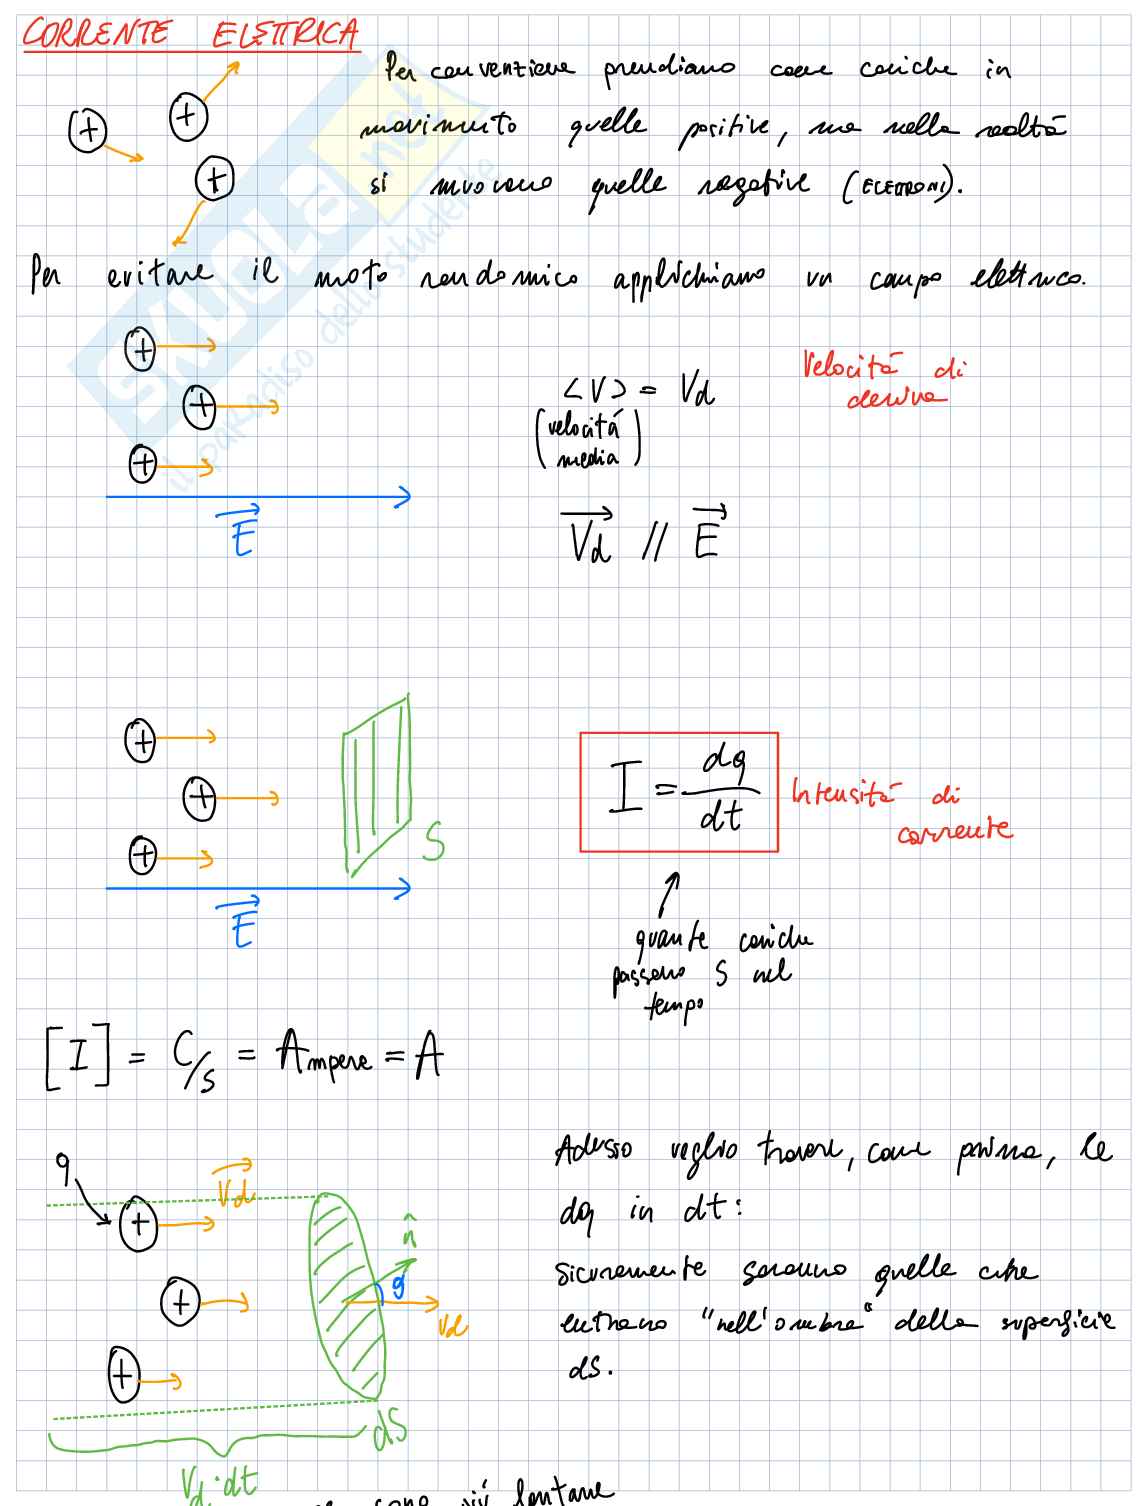 CORRENTE ELETTRICA
Per convenzione prendiamo come cariche in
movimento quelle positive, ma nella realtà
si muovono quelle negative (ELETTRONI).
Per evitare il moto randomico applichiamo un campo elettrico.
+
+
+
SKUOLA.net
il paradiso dello studente
+
+
+
E
<V> = Vd
(velocitá
media)
Velocitá di
deriva
Vd // E
+
+
+
S
E
I = dq/dt
Intensitá di
corrente
quante cariche
passano S nel
tempo
[I] = C/s = Ampere = A
q
Vd
+
+
+
n̂
θ
Vd
dS
Vd·dt
Adesso voglio trovare, come prima, le
dq in dt:
sicuramente saranno quelle che
entrano "nell'ombra" della superficie
dS.
sono piú lontane